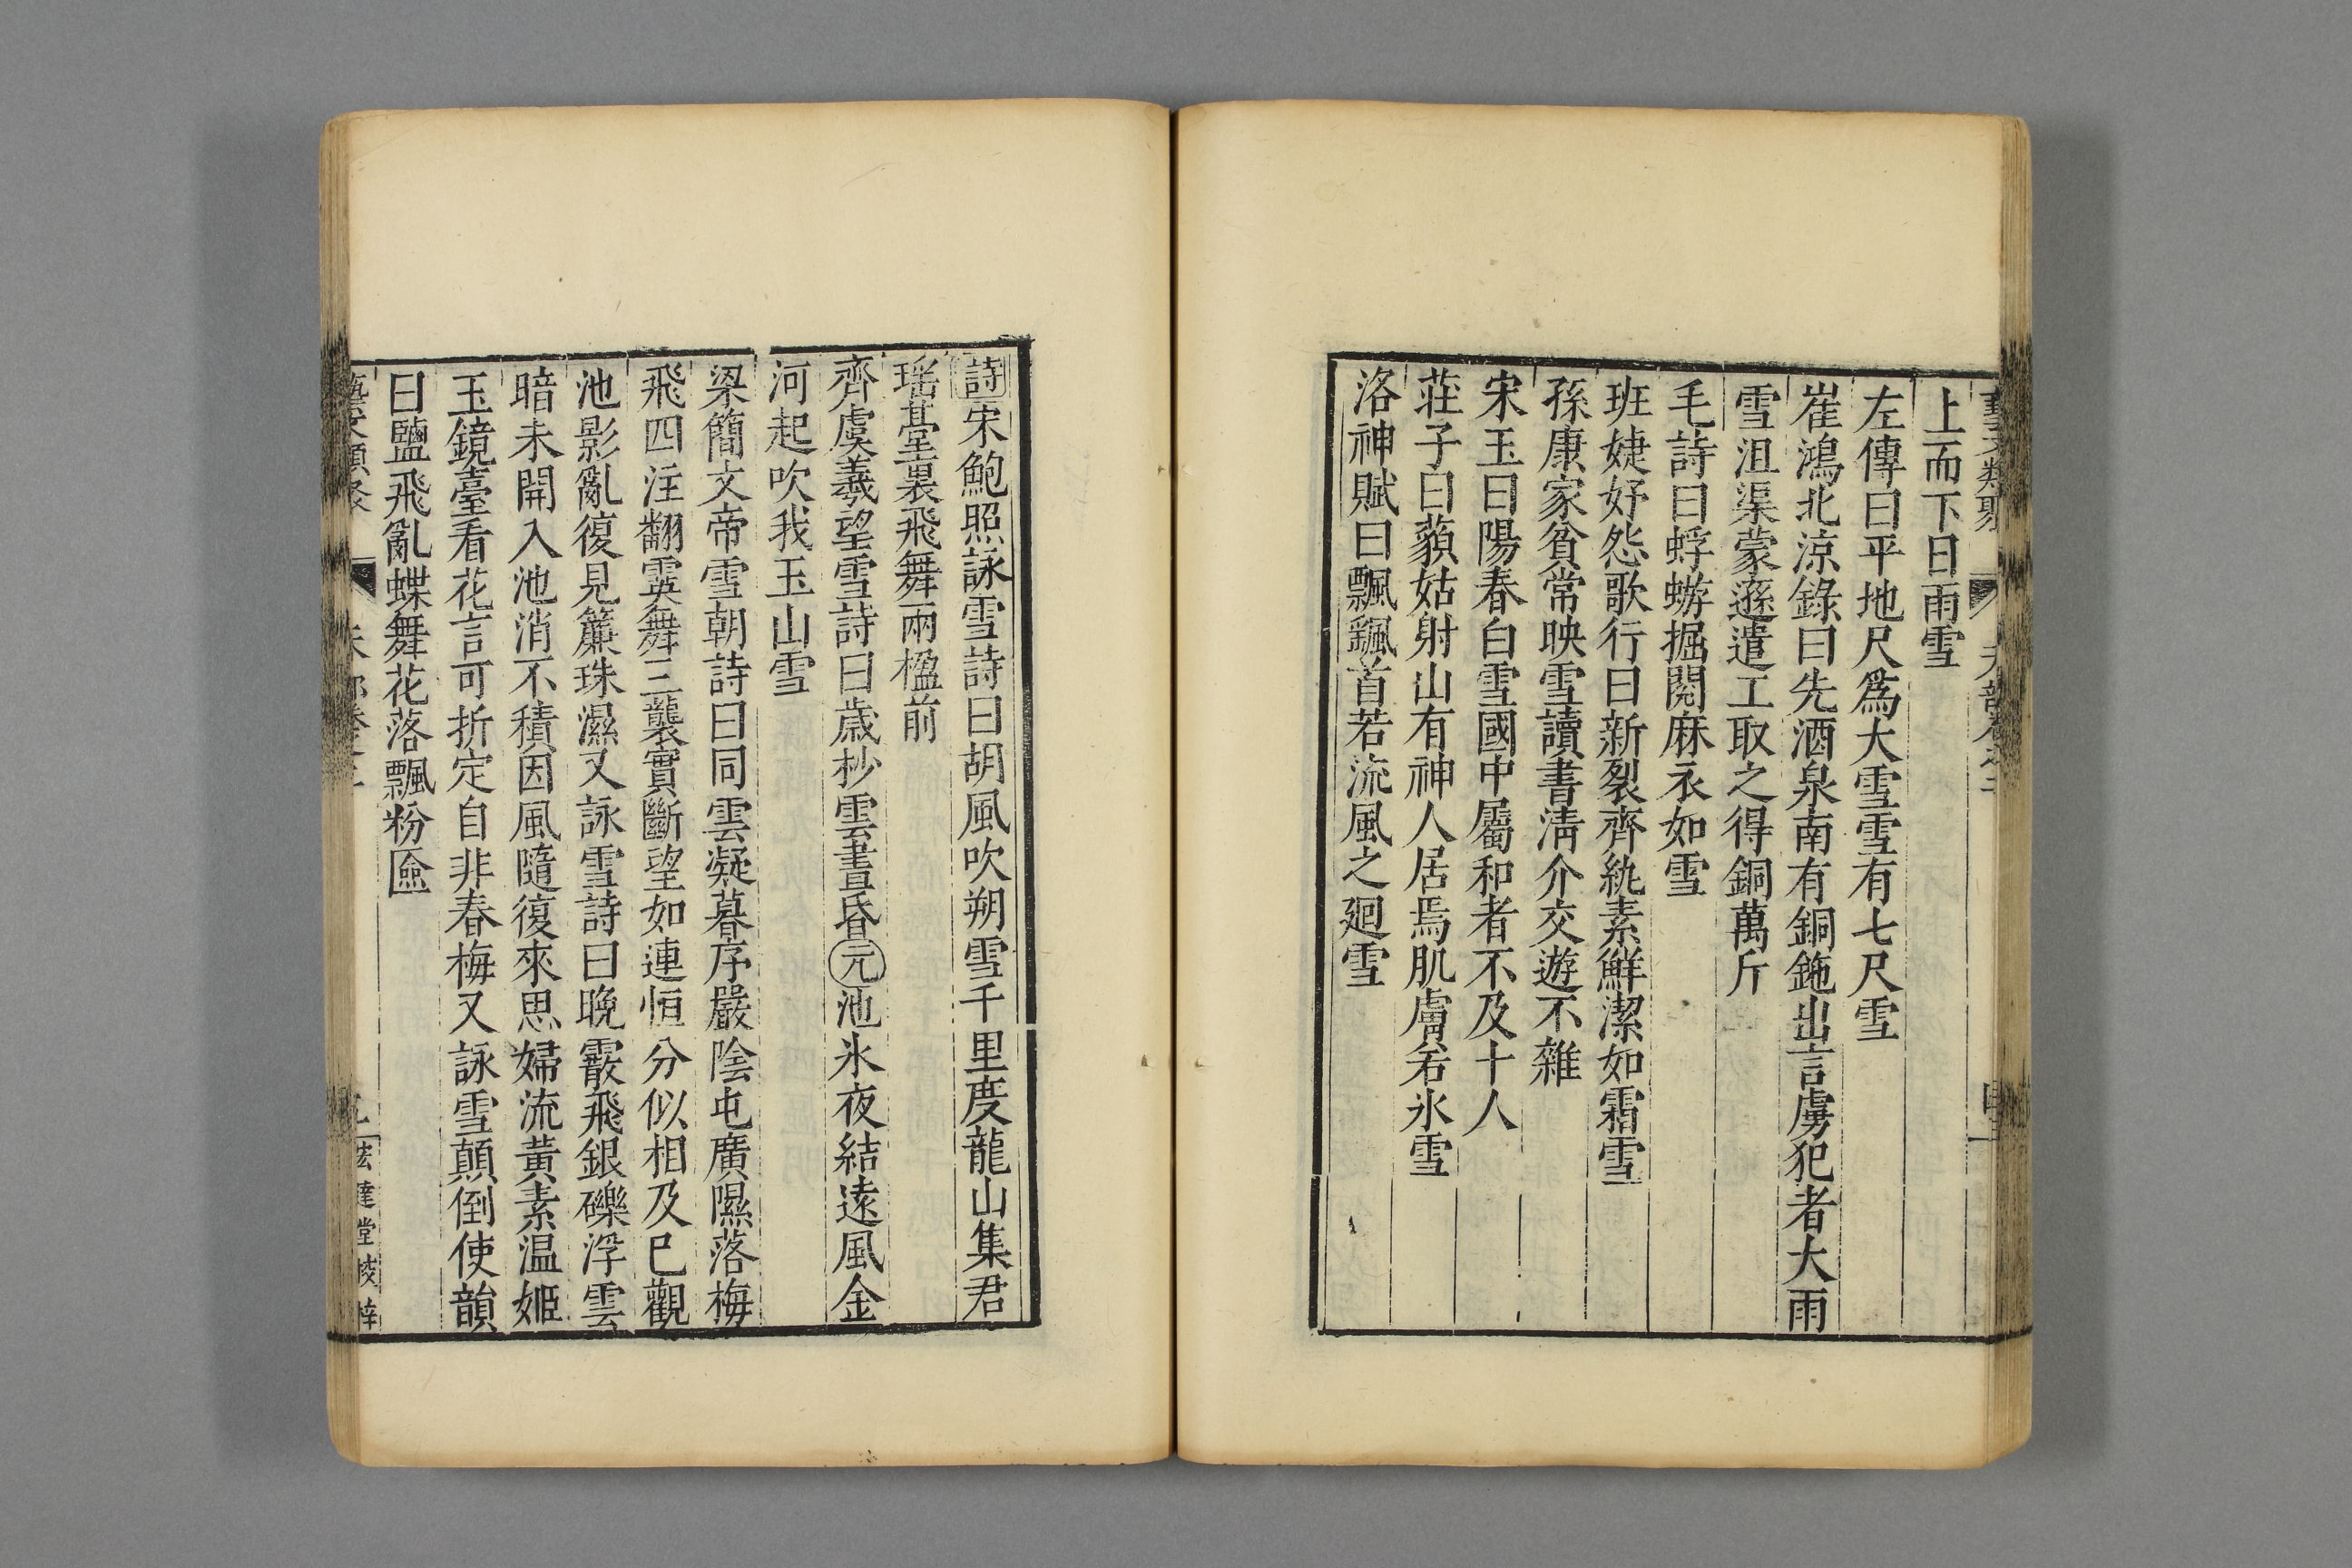 上而下曰雨雪
左傳曰平地尺爲大雪雪有七尺雪
崔鴻北涼錄曰先酒泉南有銅鉇出言虜犯者大雨
雪沮渠蒙遜遣工取之得銅萬斤
毛詩曰蜉蝣掘閱麻衣如雪
班婕妤怨歌行曰新裂齊紈素鮮潔如霜雪
孫康家貧常映雪讀書淸介交遊不雜
宋玉曰陽春白雪國中屬和者不及十人
莊子曰藐姑射山有神人居焉肌膚若氷雪
洛神賦曰飄飖首若流風之廻雪
詩宋鮑照詠雪詩曰胡風吹朔雪千里度龍山集君
瑶臺裏飛舞兩楹前
齊虞羲望雪詩曰歲杪雲晝昏元池氷夜結遠風金
河起吹我玉山雪
梁簡文帝雪朝詩曰同雲凝暮序嚴陰屯廣隰落梅
飛四注翻霙舞三襲實斷望如連恒分似相及已觀
池影亂復見簾珠濕又詠雪詩曰晚霰飛銀礫浮雲
暗未開入池消不積因風隨復來思婦流黃素温姬
玉鏡臺看花言可折定自非春梅又詠雪顛倒使韻
曰鹽飛亂蝶舞花落飄粉匳